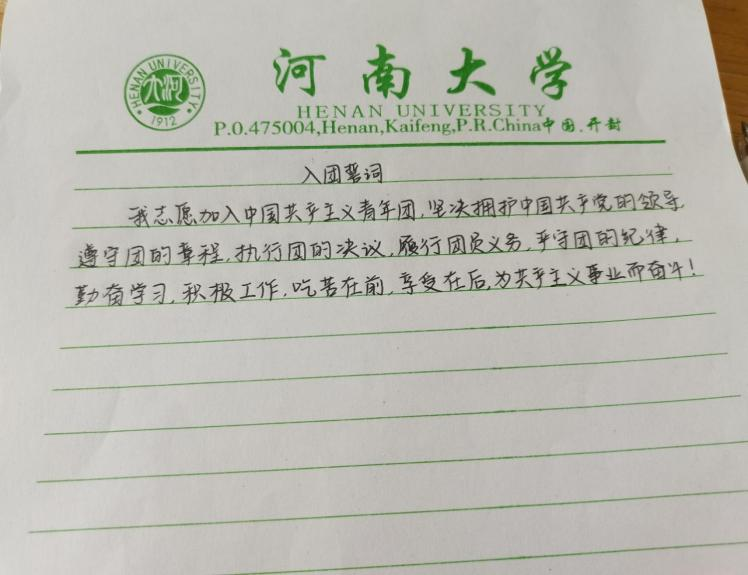 河南大学
HENAN UNIVERSITY
1912
HENAN UNIVERSITY
P.O.475004,Henan,Kaifeng,P.R.China中国.开封
入团誓词
我志愿加入中国共产主义青年团,坚决拥护中国共产党的领导,
遵守团的章程,执行团的决议,履行团员义务,严守团的纪律,
勤奋学习,积极工作,吃苦在前,享受在后,为共产主义事业而奋斗!